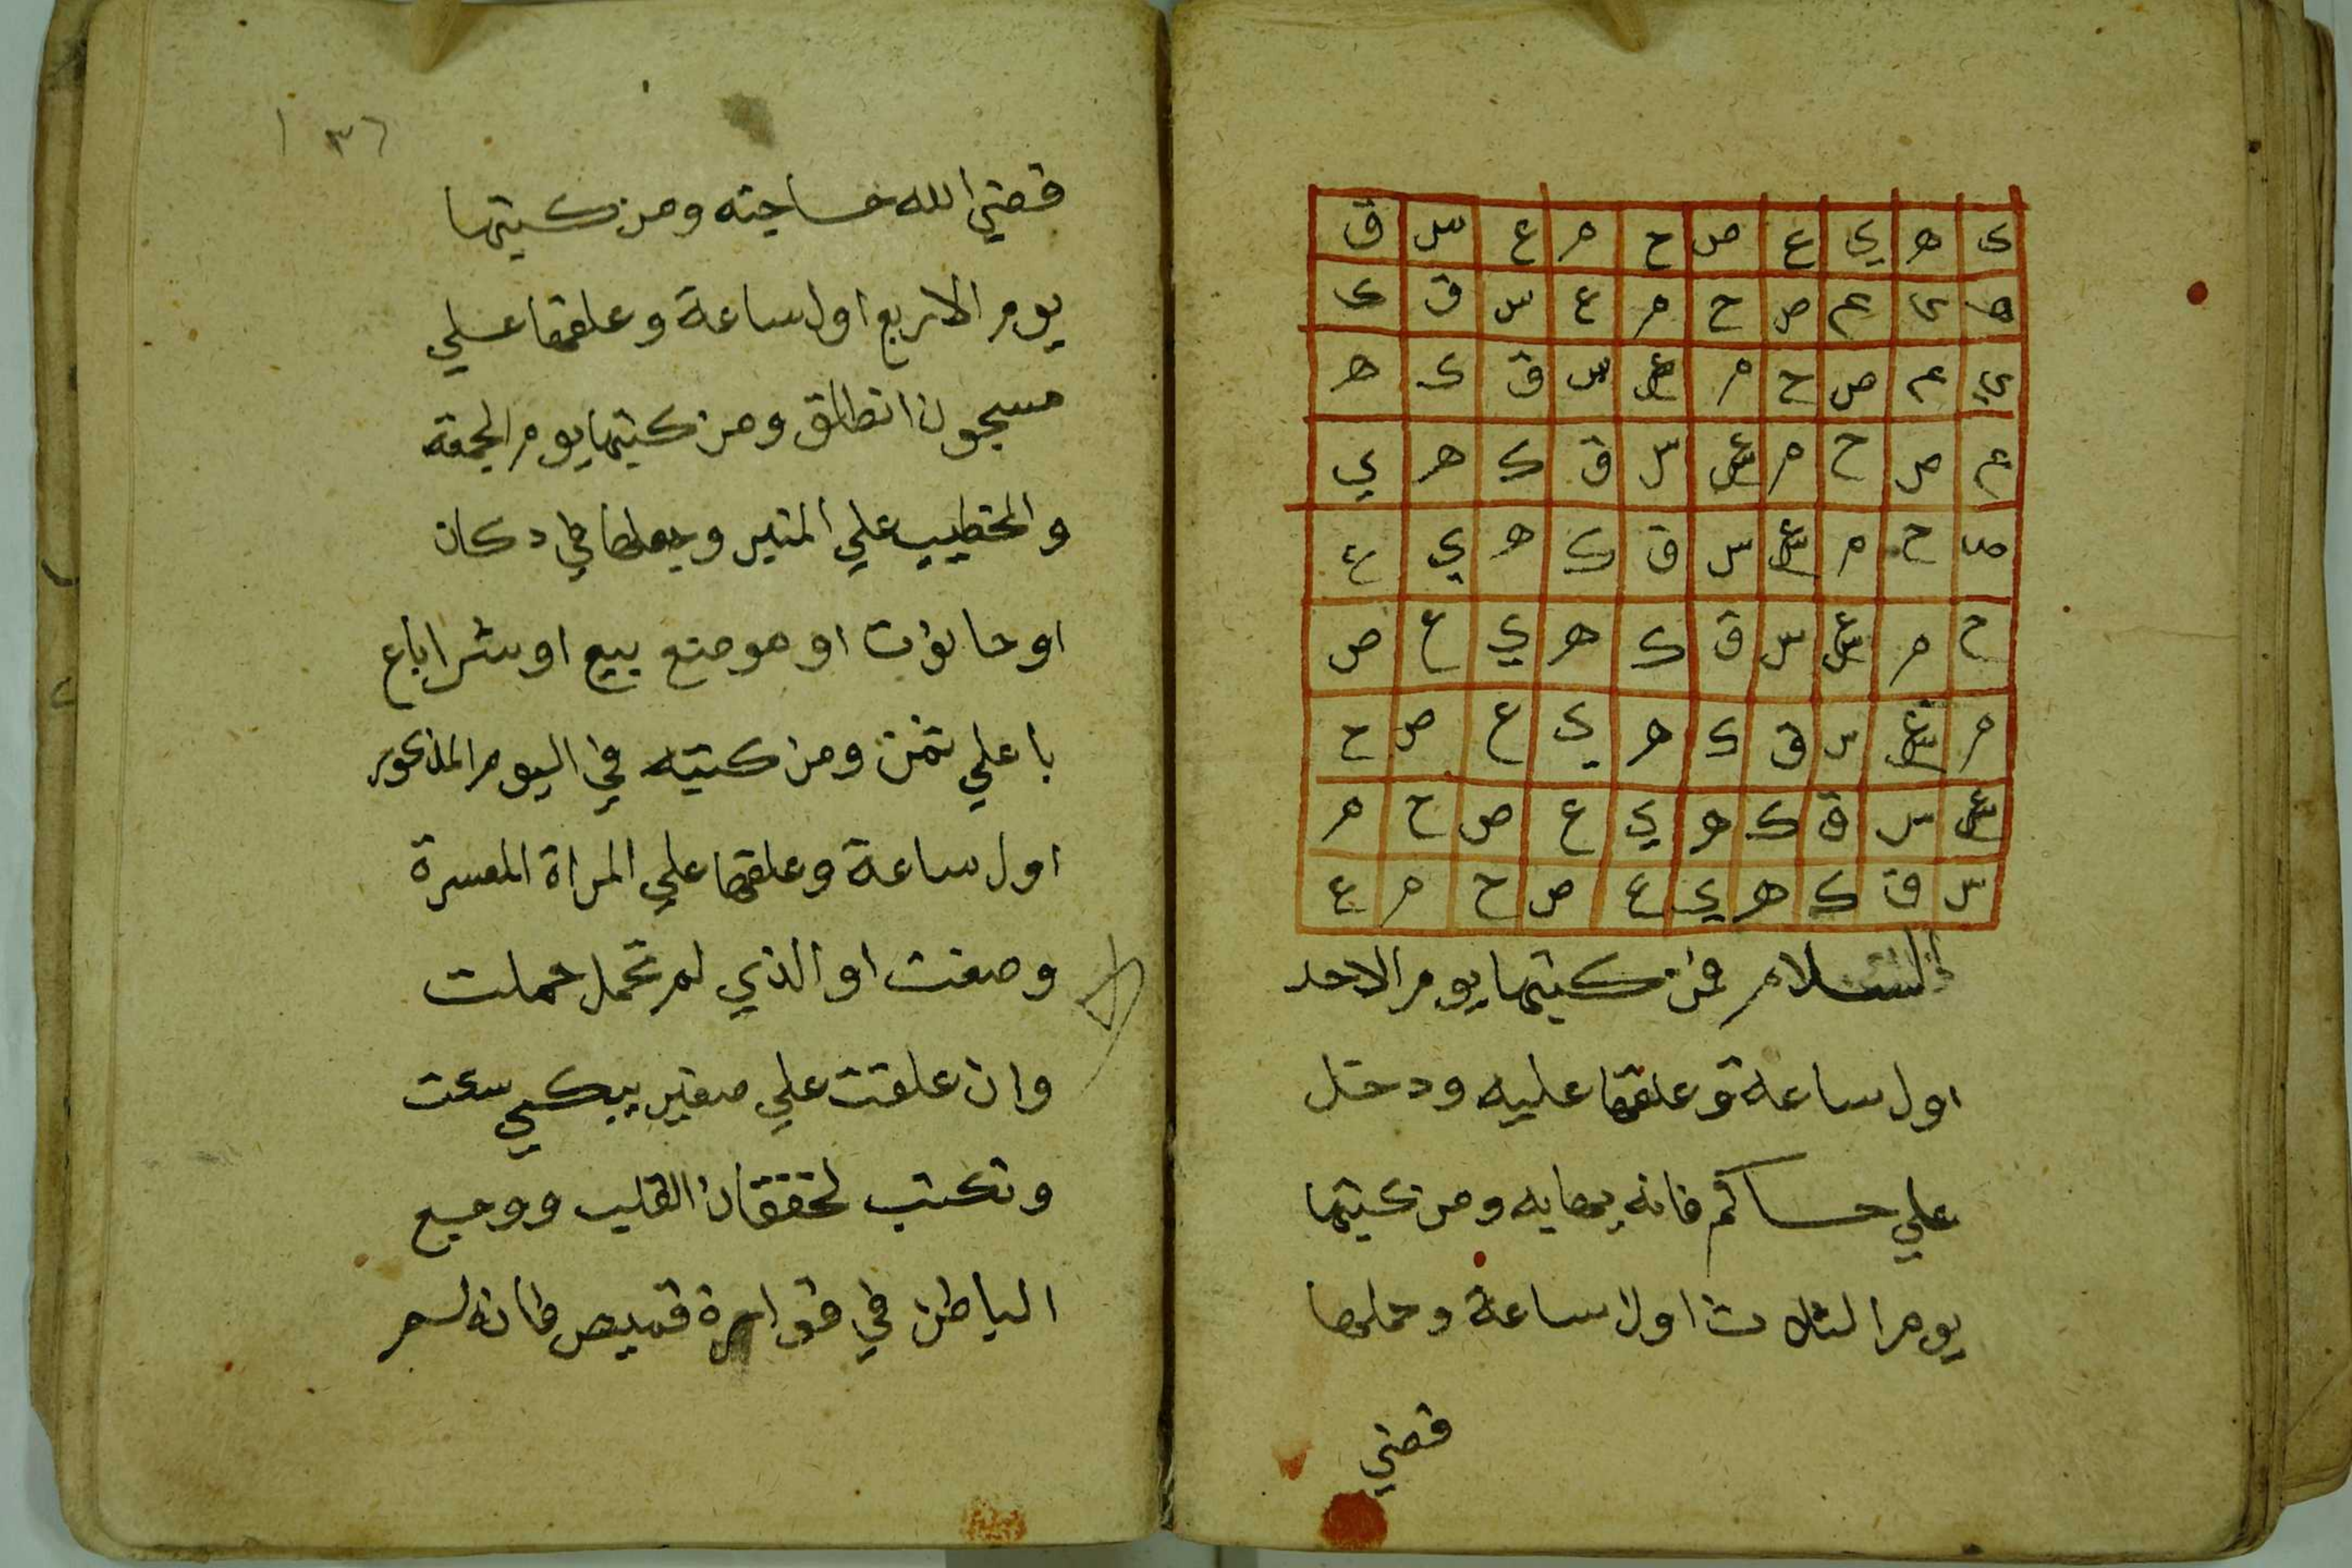 ك ه ي ع ص ح م ع س ق
ه ي ع ص ح م ع س ق ك
ي ع ص ح م ع س ق ك ه
ع ص ح م ع س ق ك ه ي
ص ح م ع س ق ك ه ي ع
ح م ع س ق ك ه ي ع ص
م ع س ق ك ه ي ع ص ح
ع س ق ك ه ي ع ص ح م
س ق ك ه ي ع ص ح م ع
السلام فمن كتبها يوم الاحد
اول ساعة وعلقها عليه ودخل
علي حاكم فانه يهابه ومن كتبها
يوم الثلاث اول ساعة وحملها
قضي
١٣٦
قضي الله حاجته ومن كتبها
يوم الاربع اول ساعة وعلقها علي
مسجون انطلق ومن كتبها يوم الجمعة
والخطيب علي المنبر وجعلها في دكان
او حانوت او موضع بيع او شرا اباع
باعلي ثمن ومن كتبه في اليوم المذكور
اول ساعة وعلقها علي المراة المعسرة
وضعت او الذي لم تحمل حملت
وان علقت علي صغير يبكي سكت
وتكتب لخفقان القلب ووجع
الباطن في قوارة قميص فانه لم